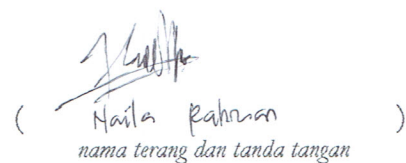 ( Naila Rahman )
nama terang dan tanda tangan